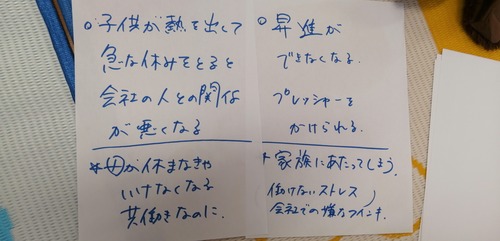 ○子供が熱を出して
急な休みをとると
会社の人との関係
が悪くなる
*母が休まなきゃ
いけなくなる
共働きなのに.
○昇進が
できなくなる.
プレッシャーを
かけられる.
*家族にあたってしまう.
働けないストレス
会社での嫌な